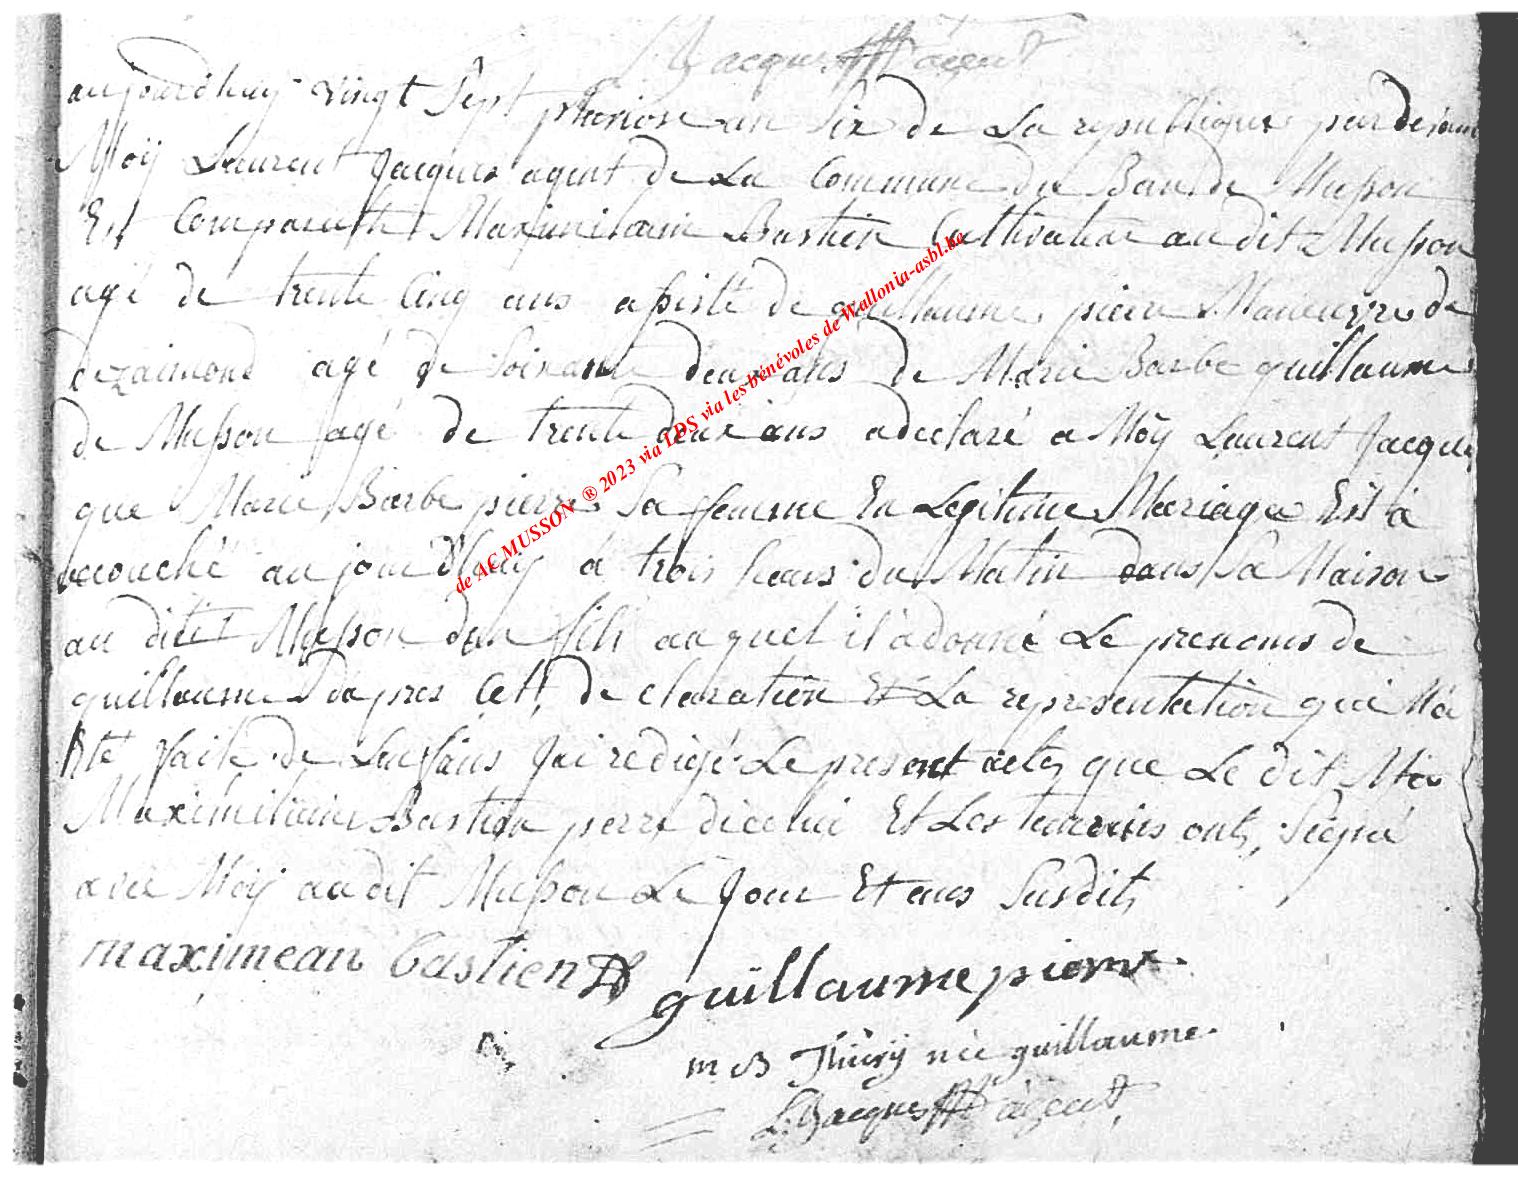 L Jacques agent
aujourdhuy vingt Sept pluviose an Six de La republique pardevant
Moÿ Laurent Jacques agent de La Commune du Ban de Musson
Est Comparuth Maximiliain Bastien Cultivateur au dit Musson
agé de trente Cinq ans assisté de guillaume pierre Maneuvre de
agé de Soixante deux ans de Marie Barbe guillaume
de Musson agé de trente deux ans adeclaré a Moÿ Laurent Jacques
que Marie Barbe pierre Sa femme En Legitime Mariage Est à
accouché aujourd'huy a trois heures du Matin dans Sa Maison
au ditt Musson dun fils auquel il adonné Le prenoms de
guillaume dapres Cett declaration Et La representation qui Ma
Eté faite de Lenfans Jai redigé Le present acte, que Le dit Ma
Maximiliain Bastien perre dicelui Et Les temoins ont, Signé
avec Moÿ au dit Musson Le Jour Et ans Susdit,
maximean bastien
guillaume pierre
m B Thiery née guillaume.
L. Jacques agent,
de AC MUSSON ® 2023 via LDS via les bénévoles de Wallonia-asbl.be